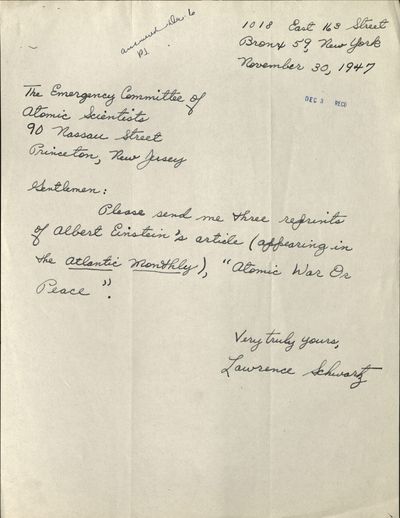 answered Dec. 6
1018 East 163 Street
Bronx 59, New York
November 30, 1947
DEC 3 RECD
The Emergency Committee of
Atomic Scientists
90 Nassau Street
Princeton, New Jersey
Gentlemen:
Please send me three reprints
of Albert Einstein's article (appearing in
the Atlantic Monthly), "Atomic War Or
Peace".
Very truly yours,
Lawrence Schwartz